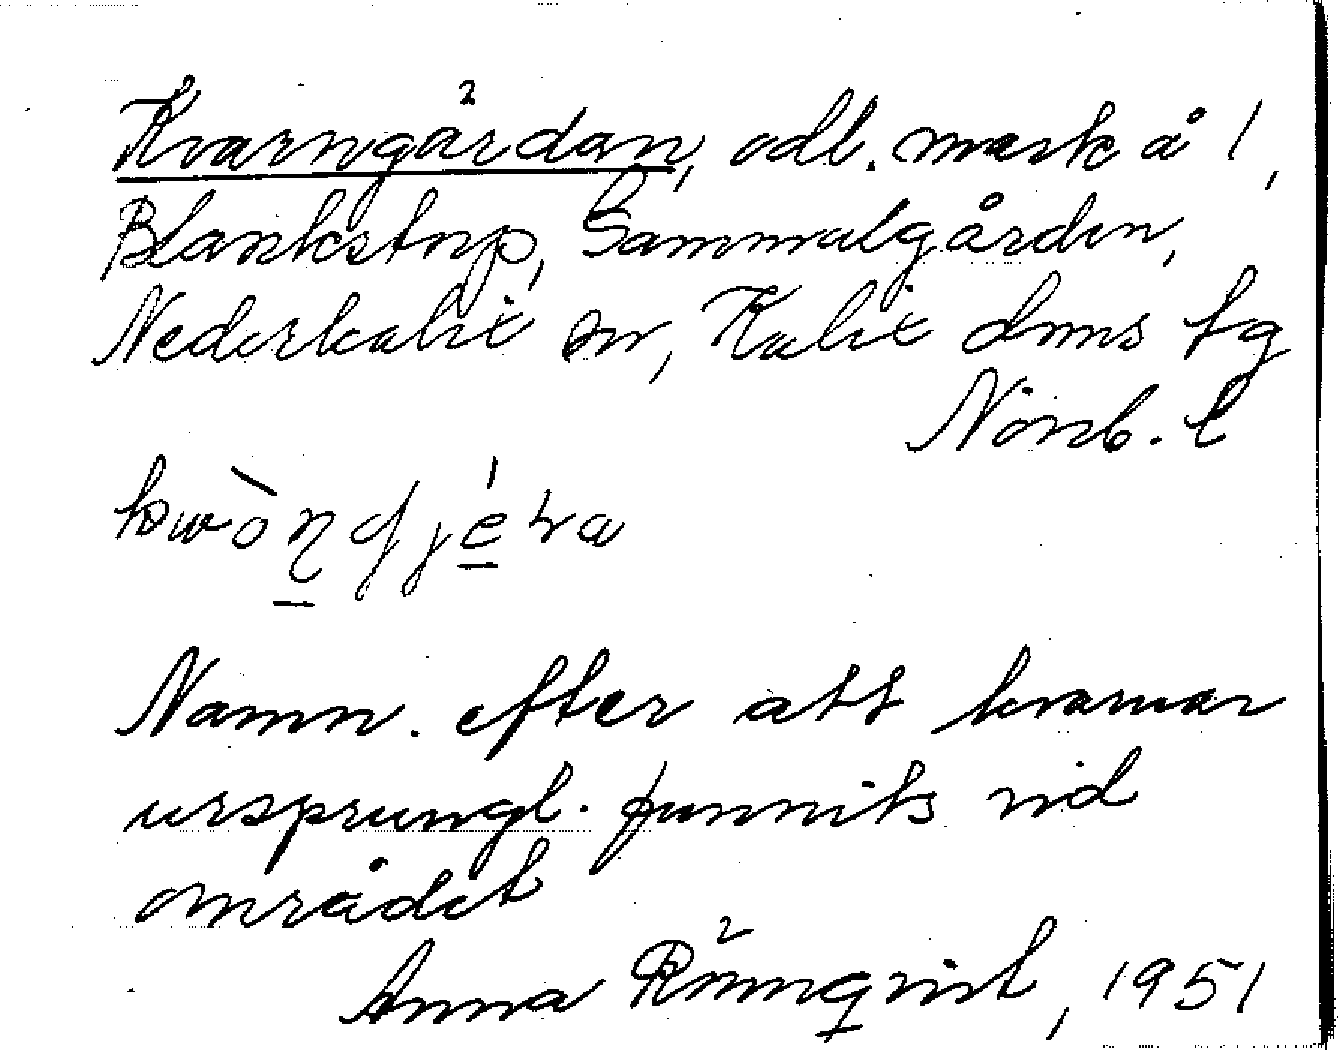 Kvarngärdan, odl. mark å 1,
Blankstorp, Gammelgården,
Nederkalix sn, Kalix doms tg
Norrb. l
Namn. efter att kvarnar
ursprungl. funnits vid
området
Anna Rönnqvist, 1951